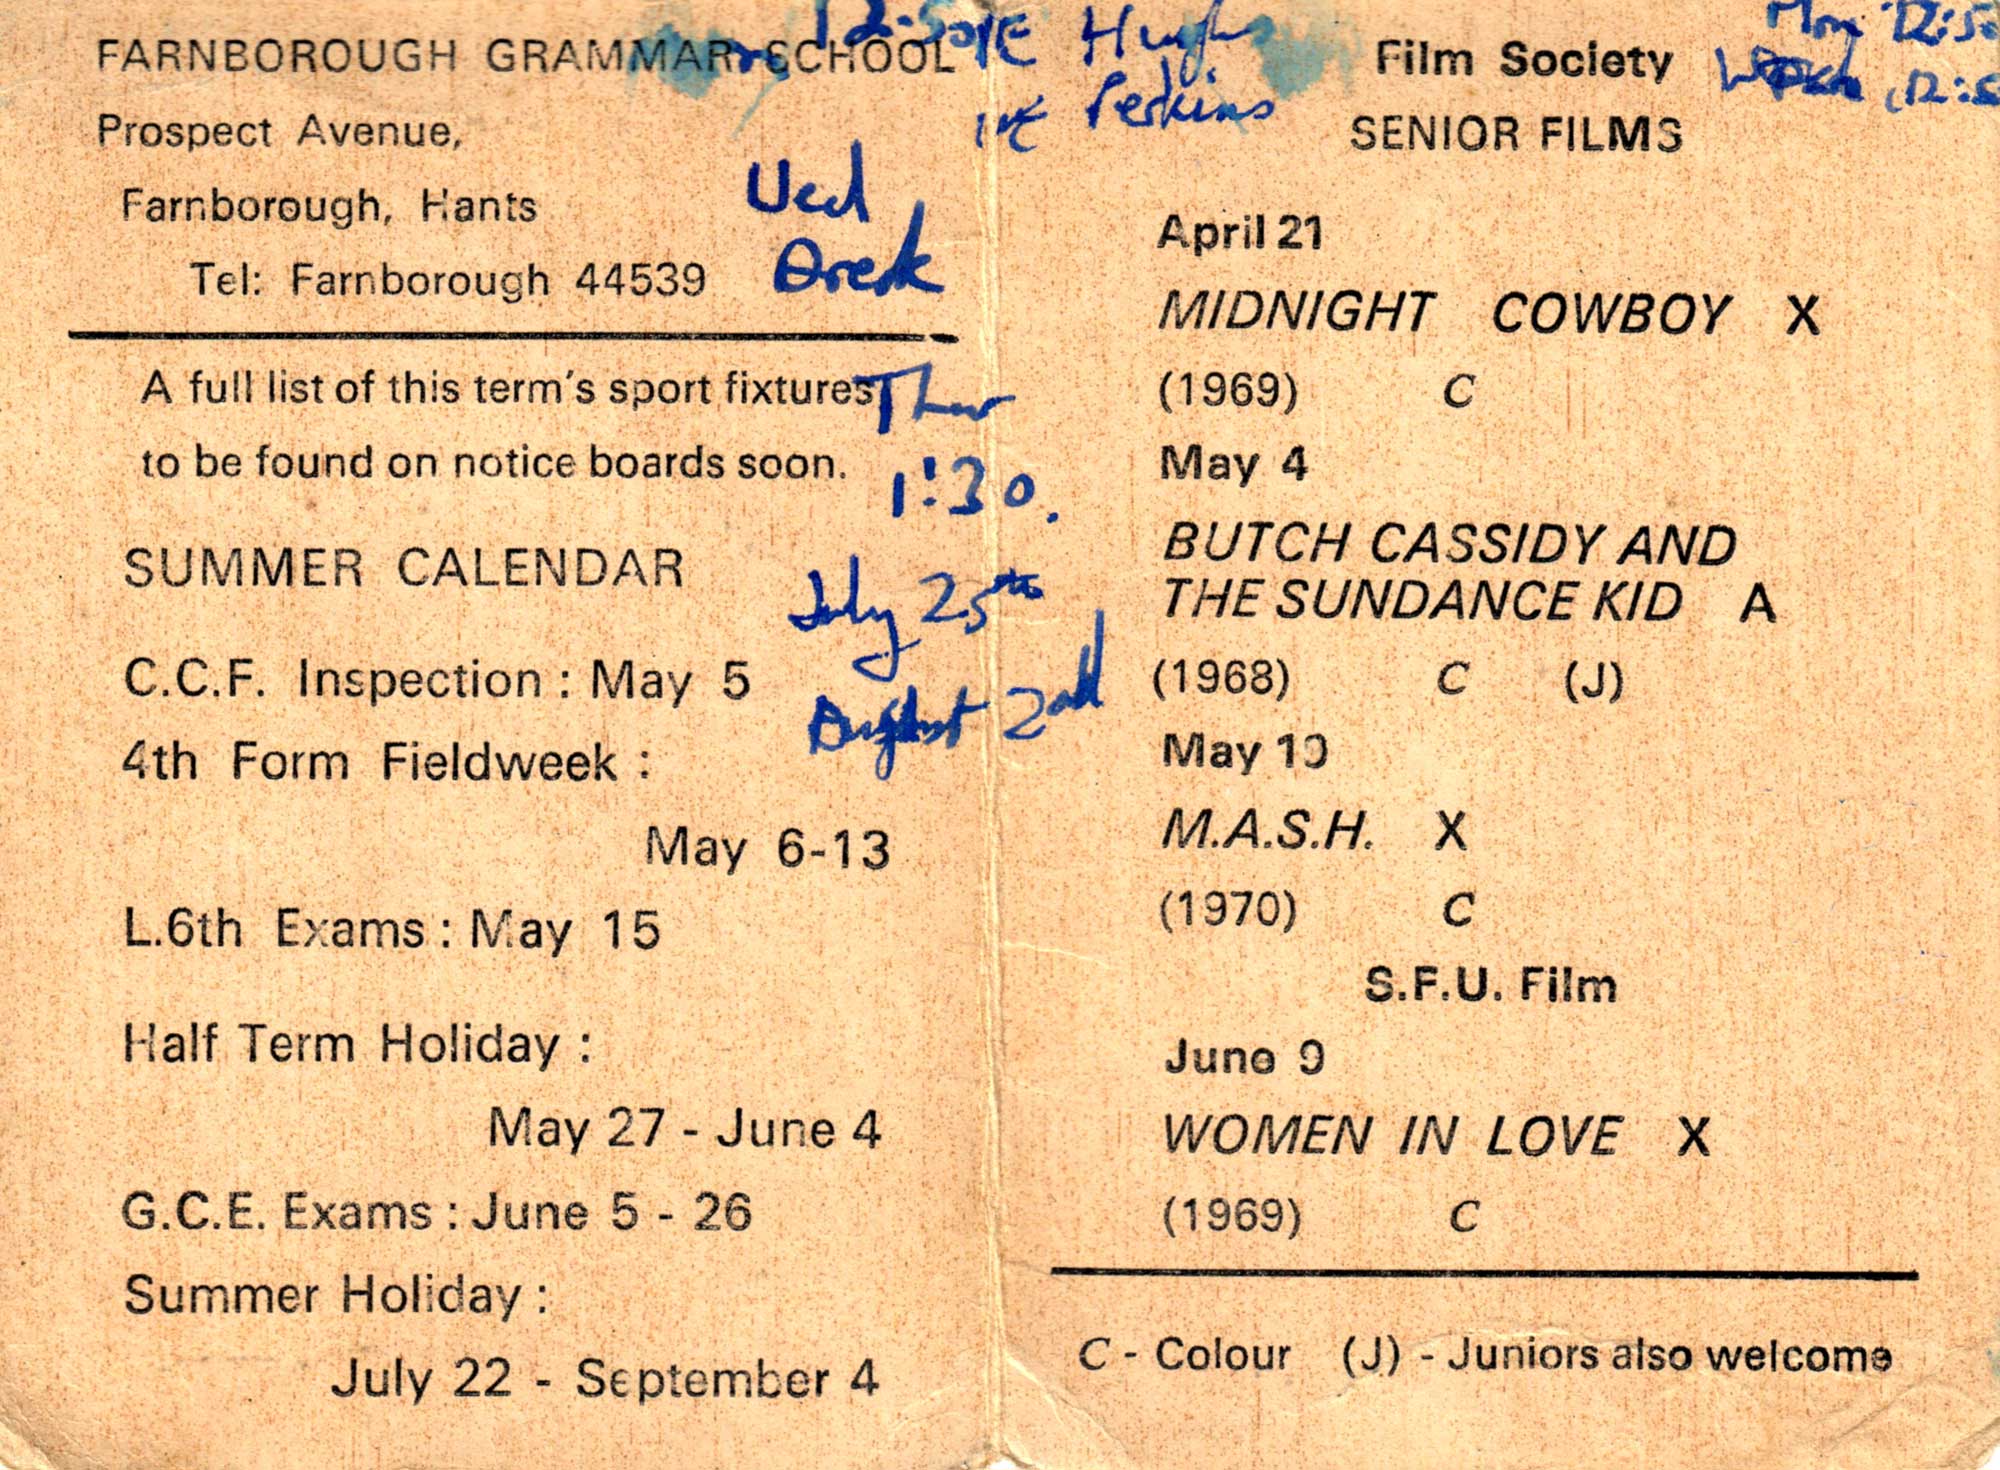 FARNBOROUGH GRAMMAR SCHOOL
Prospect Avenue,
Farnborough, Hants
Tel: Farnborough 44539
A full list of this term's sport fixtures
to be found on notice boards soon.
SUMMER CALENDAR
C.C.F. Inspection : May 5
4th Form Fieldweek :
May 6-13
L.6th Exams : May 15
Half Term Holiday :
May 27 - June 4
G.C.E. Exams : June 5 - 26
Summer Holiday :
July 22 - September 4
12.50
Hughes
Perkins
Wed
Break
Thur
1:30.
July 25th
August 2nd
Mon 12:50
Film Society
SENIOR FILMS
April 21
MIDNIGHT COWBOY X
(1969) C
May 4
BUTCH CASSIDY AND
THE SUNDANCE KID A
(1968) C (J)
May 19
M.A.S.H. X
(1970) C
S.F.U. Film
June 9
WOMEN IN LOVE X
(1969) C
C - Colour (J) - Juniors also welcome